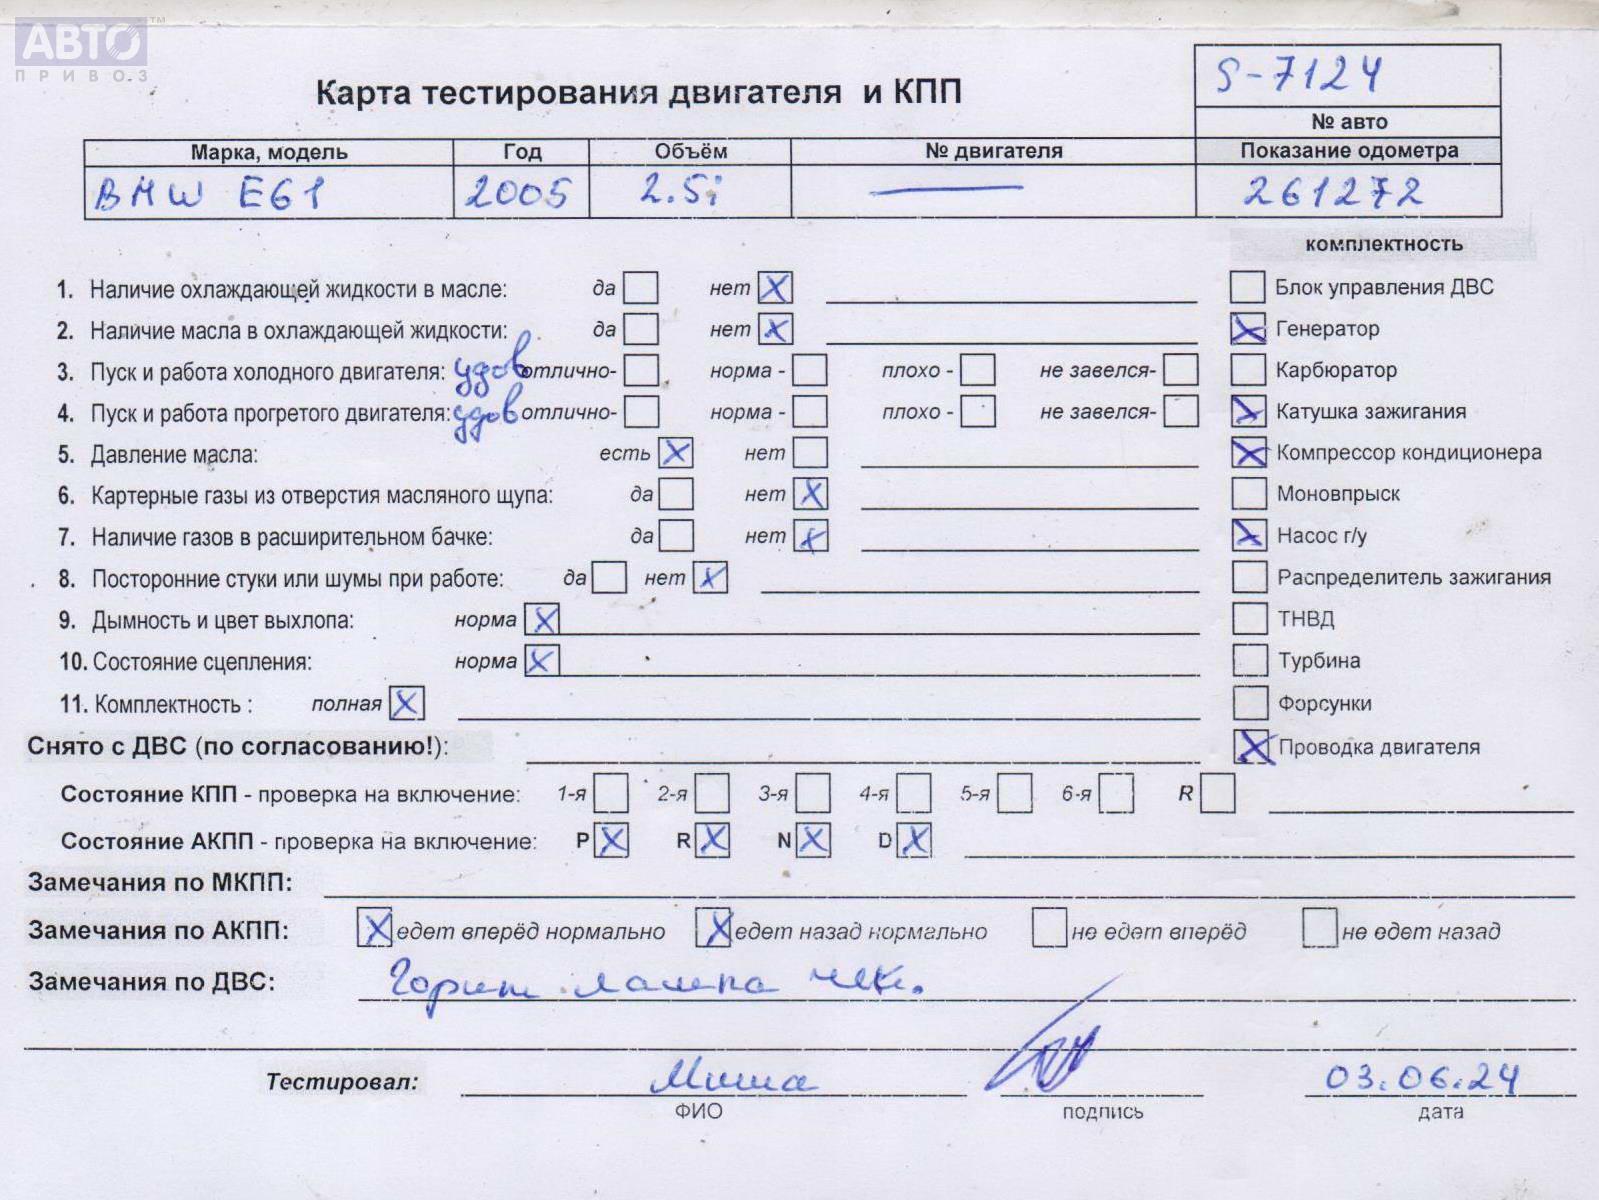 АВТО ™
ПРИВОЗ
S-7124
Карта тестирования двигателя и КПП
№ авто
Марка, модель Год Объём № двигателя Показание одометра
BMW E61 2005 2.5i — 261272
комплектность
1. Наличие охлаждающей жидкости в масле: да нет X Блок управления ДВС
2. Наличие масла в охлаждающей жидкости: да нет X X Генератор
3. Пуск и работа холодного двигателя: удов отлично- норма - плохо - не завелся- Карбюратор
4. Пуск и работа прогретого двигателя: удов отлично- норма - плохо - не завелся- X Катушка зажигания
5. Давление масла: есть X нет X Компрессор кондиционера
6. Картерные газы из отверстия масляного щупа: да нет X Моновпрыск
7. Наличие газов в расширительном бачке: да нет X X Насос г/у
8. Посторонние стуки или шумы при работе: да нет X Распределитель зажигания
9. Дымность и цвет выхлопа: норма X ТНВД
10. Состояние сцепления: норма X Турбина
11. Комплектность : полная X Форсунки
Снято с ДВС (по согласованию!): X Проводка двигателя
Состояние КПП - проверка на включение: 1-я 2-я 3-я 4-я 5-я 6-я R
Состояние АКПП - проверка на включение: P X R X N X D X
Замечания по МКПП:
Замечания по АКПП: X едет вперёд нормально X едет назад нормально не едет вперёд не едет назад
Замечания по ДВС: Горит лампа чек.
Тестировал: Миша 03.06.24
ФИО подпись дата